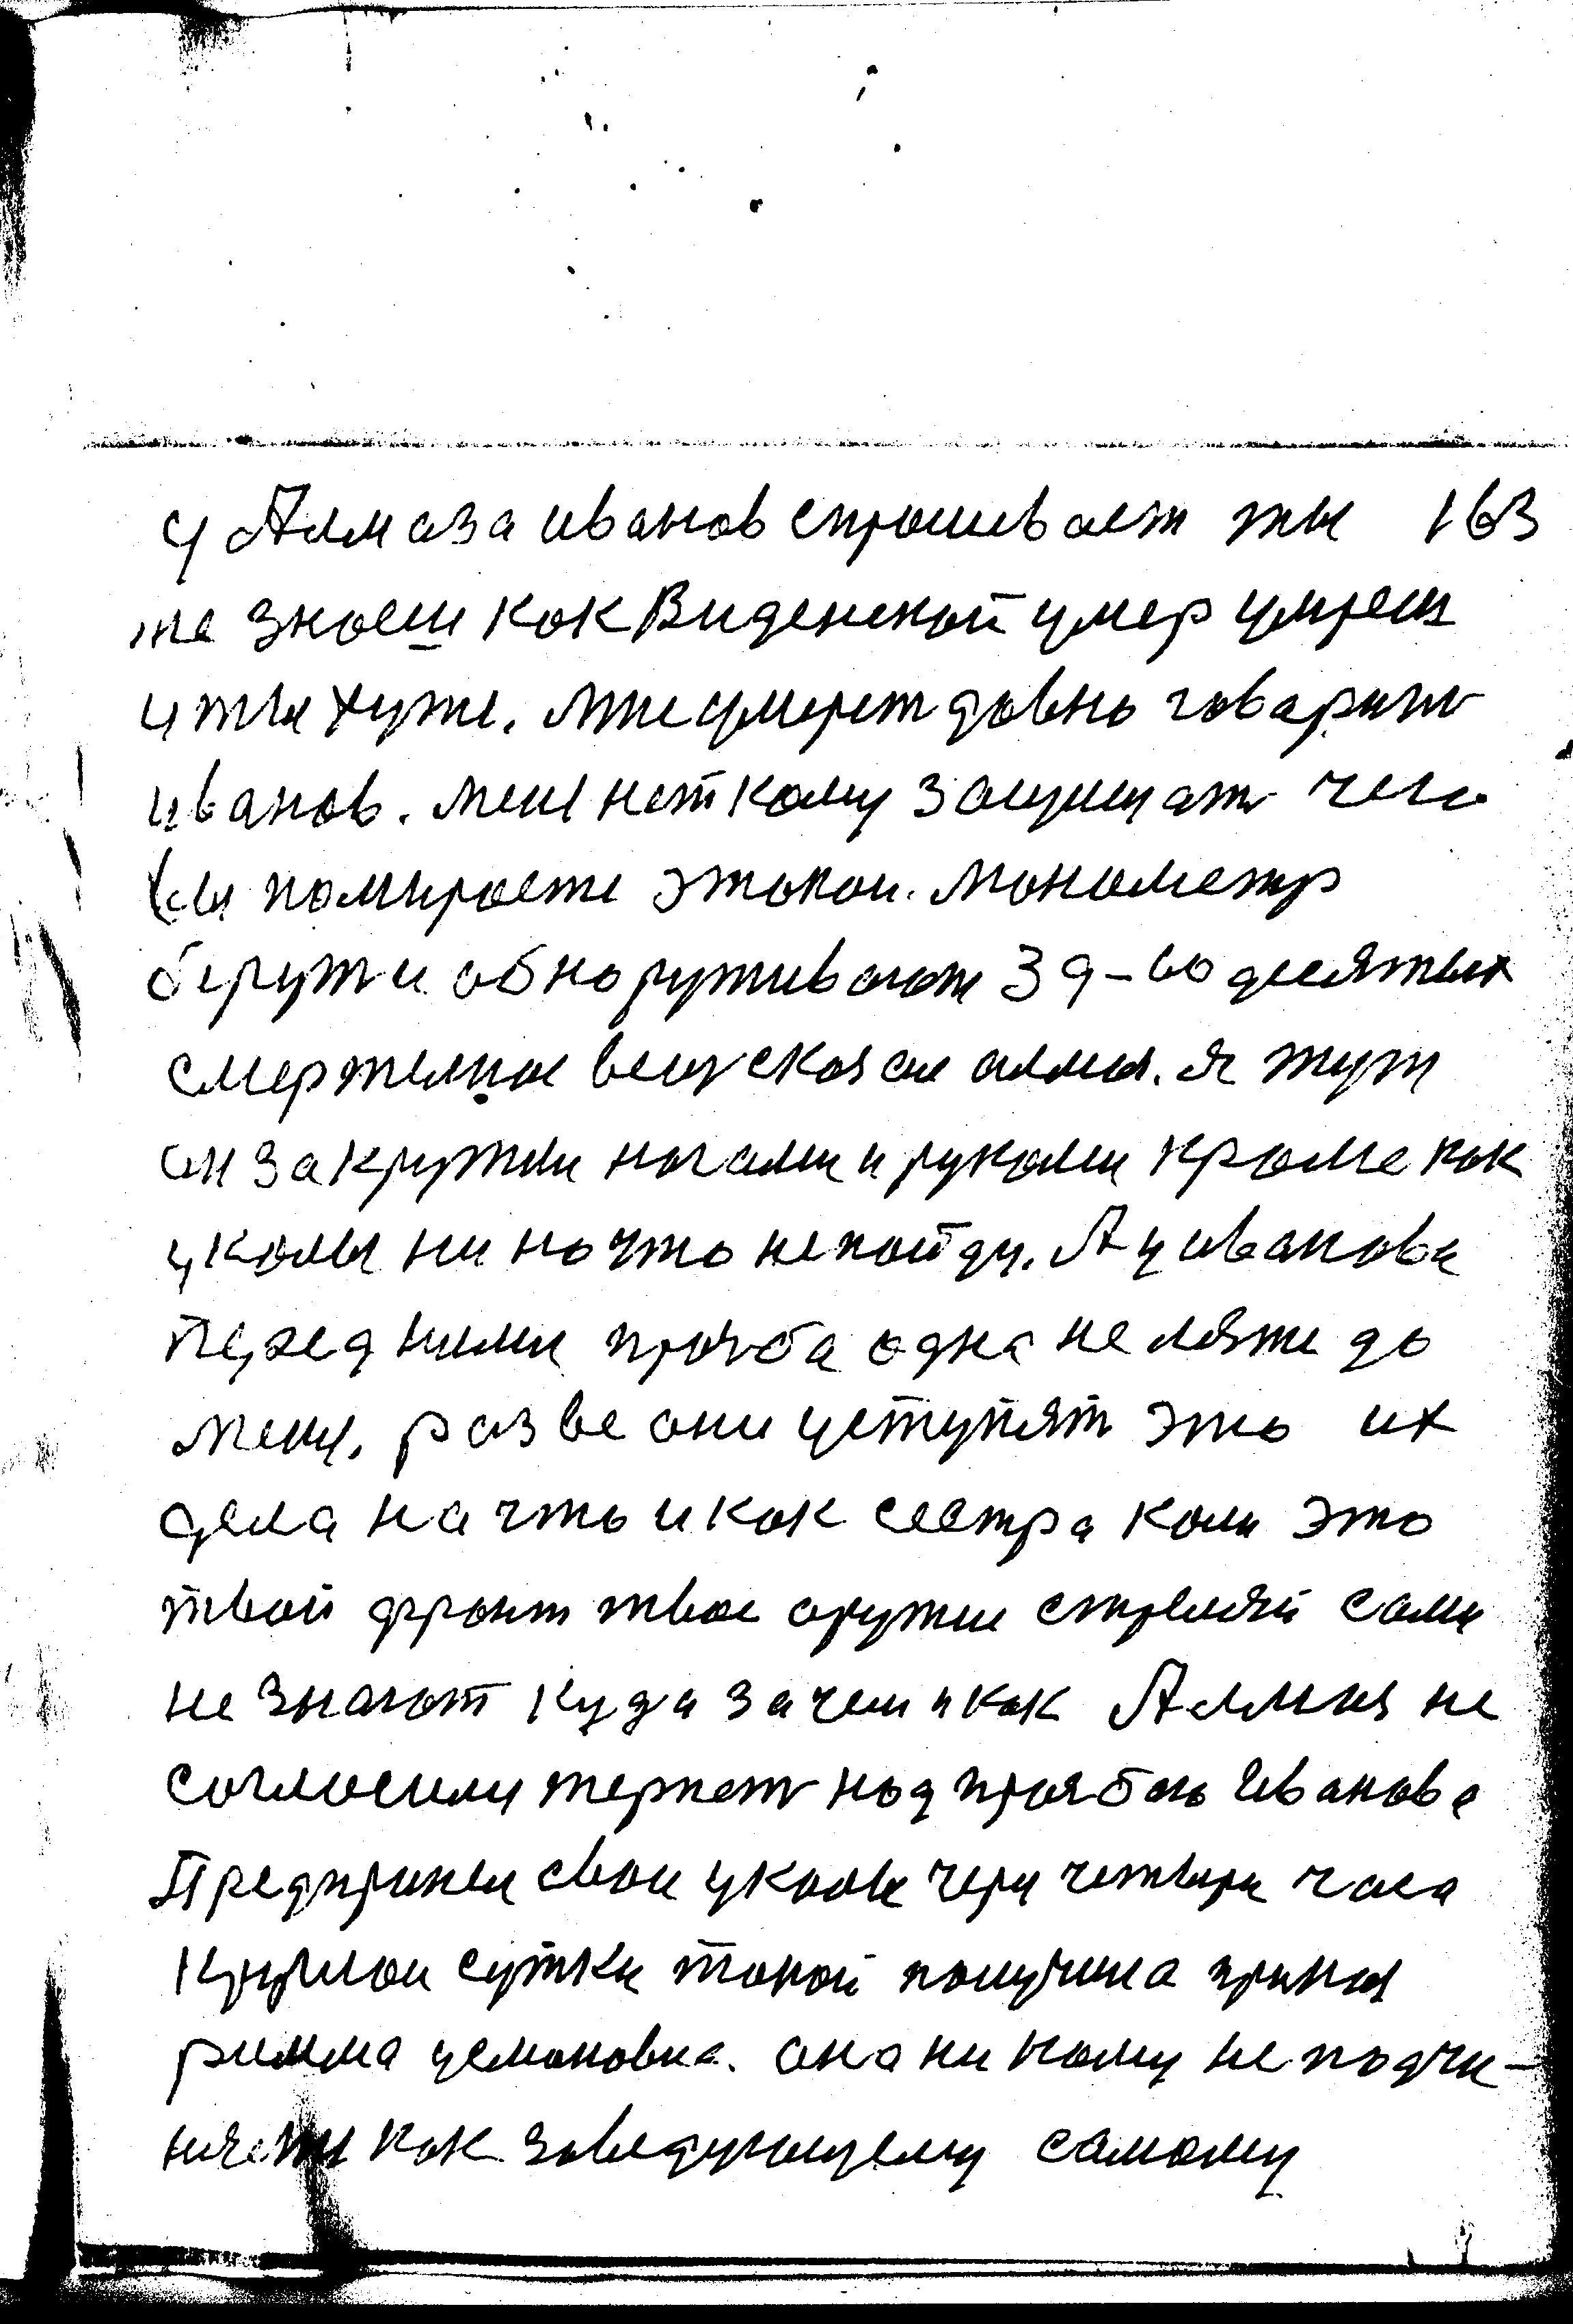 у Алмаза иванов спрошивает ты 163
же знаеш как Виденской умер умреш
и ты хуже. мне умерет давно говарить
иванов. меня нет кому защищать чего
помираете этокои. монометр
берут и обноруживают 39-60 десятых
смертелное сказал я тут
он закружил ногами и руками кроме как
уколы ни на что непойду. А у иванова
перед ними прозба одна не
меня, разве они уступят это их
дела на что и как сестра коли это
твой фронт твое оружие стреляй сами
не знают куда зачем и как Алмия не
согласилия терпеть над прозбою Иванова
Предпринел свои уколы чери четыри часа
круглои сутки токой получила приказ
римма усмоновна. она ни кому не подчи-
няетя как заведующему самому